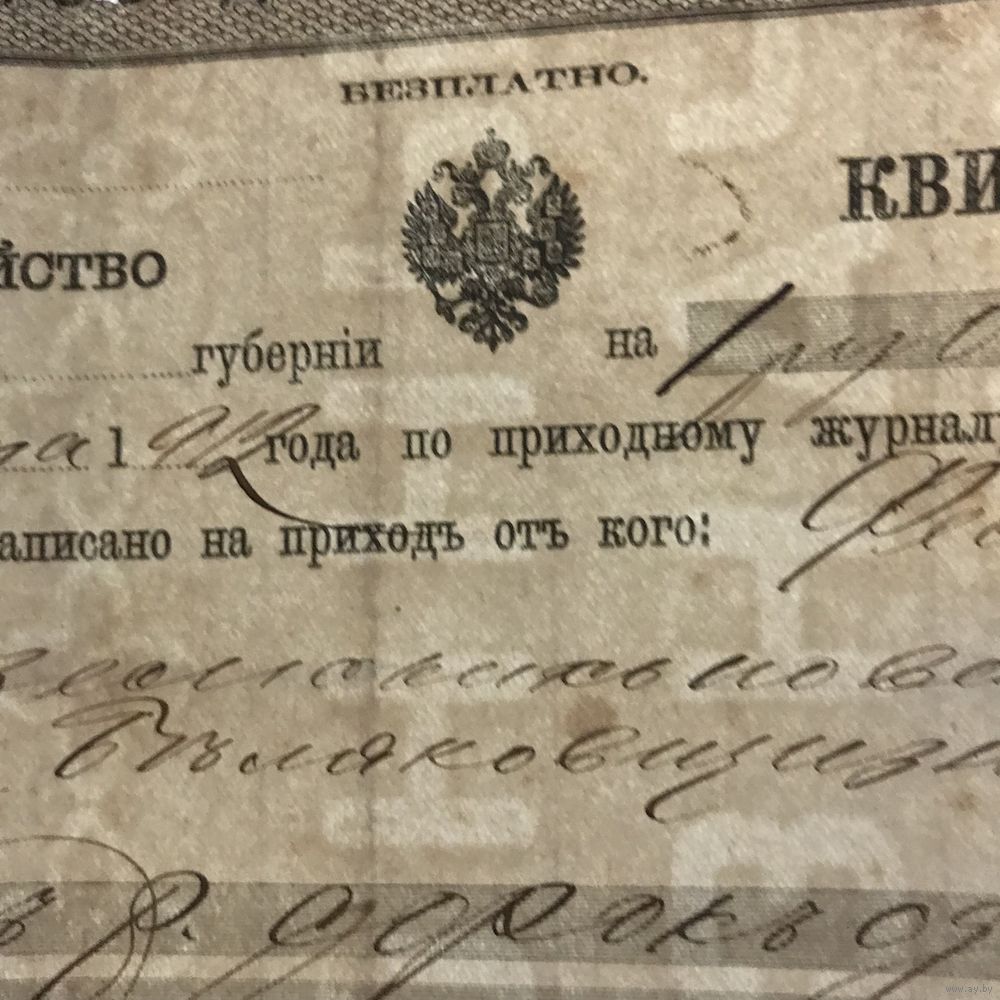 БЕЗПЛАТНО.
КВИ
йство
губерніи на 1 руб
1912 года по приходному журнал
аписано на приходъ отъ кого:
Бѣляковщизн
Р. сорокъ од
www.ay.by